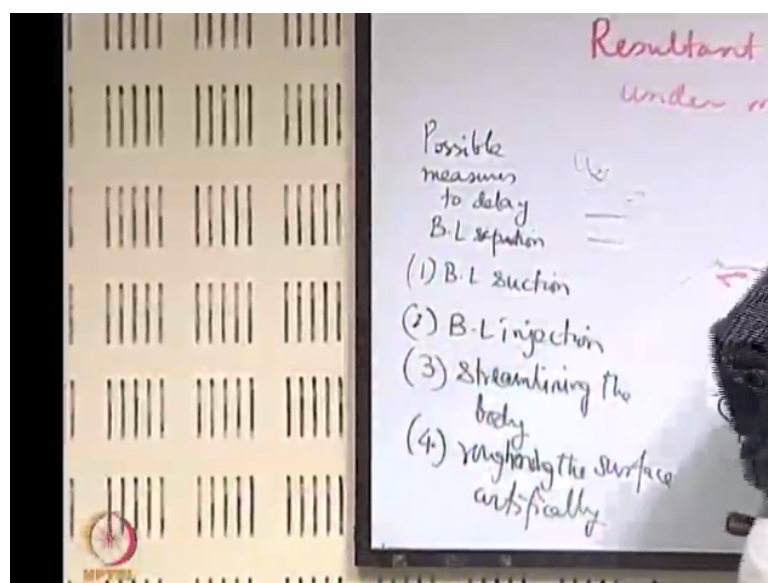 Resultant
under
Possible
measures
to delay
B.L sepation
(1) B.L suction
(2) B.L injection
(3) streamlining the
body
(4.) roughnidg the surface
artifically
NPTEL